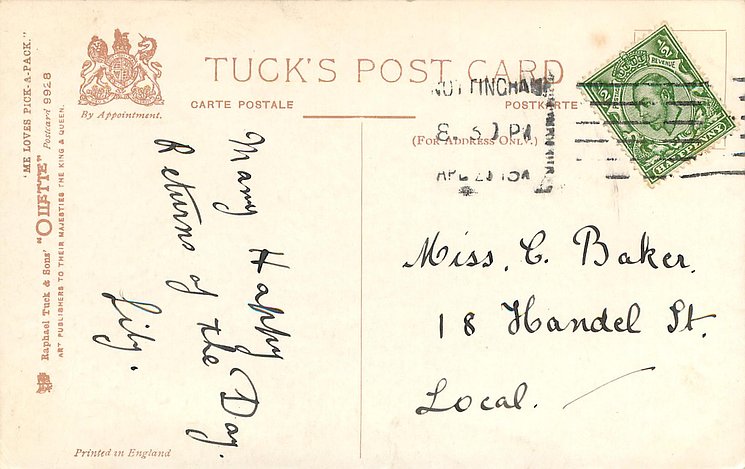 "ME LOVES PICK-A-PACK."
Raphael Tuck & Sons' "OILETTE" Postcard 9928
ART PUBLISHERS TO THEIR MAJESTIES THE KING & QUEEN.
By Appointment.
TUCK'S POST CARD
CARTE POSTALE
POSTKARTE
(FOR ADDRESS ONLY.)
NOTTINGHAM
8.30 PM
½
POSTAGE
REVENUE
½
HALFPENNY
Many Happy
Returns of the Day.
Lily.
Miss. C. Baker.
18 Handel St.
Local.
Printed in England